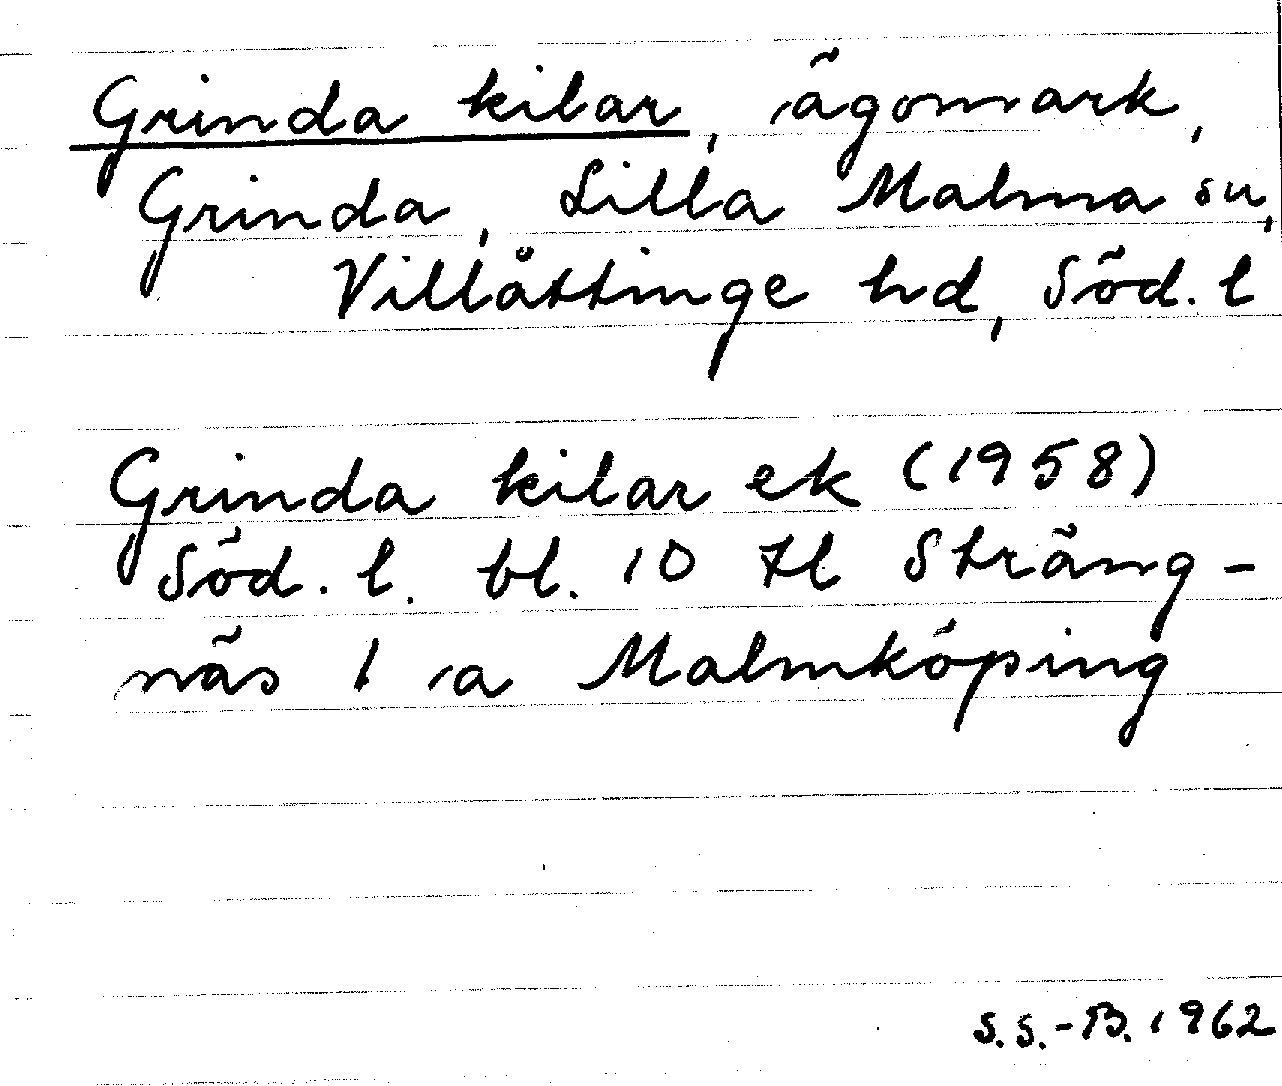 Grinda kilar, ägomark,
Grinda, Lilla Malma sn,
Villåttinge hd, Söd. l
Grinda kilar ek (1958)
Söd. l. bl. 10 tl Sträng-
näs 1 a Malmköping
S.S.-B. 1962